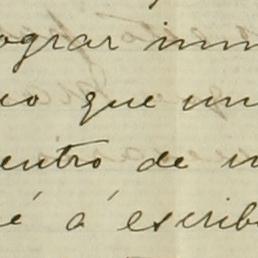 ograr inm
o que un
entro de u
é á escrib